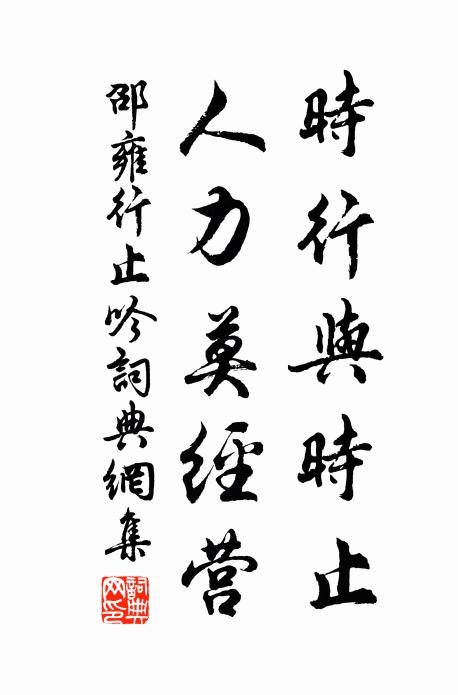 時行與時止
人力莫經营
邵雍行止吟詞典網集
詞典网印